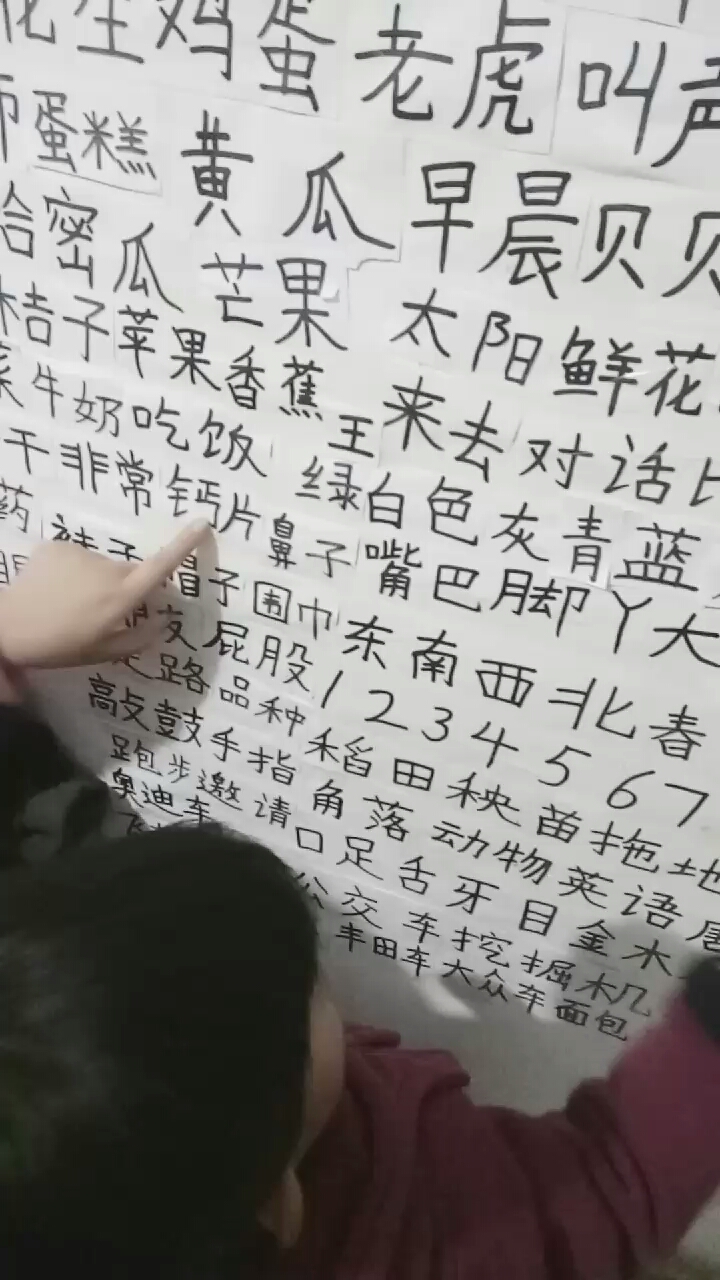 花生鸡蛋老虎叫声
蛋糕黄瓜早晨贝贝
哈密瓜芒果太阳鲜花
桔子苹果香蕉来去对话
菜牛奶吃饭王绿白色灰青蓝
干非常钙片鼻子嘴巴脚丫大
药袜子帽子围巾东南西北春
朋友屁股1234567
走路品种稻田秧苗拖地
高敲鼓手指角落动物英语唐
跑步邀请口足舌牙目金木
奥迪车公交车挖掘机
飞丰田车大众车面包